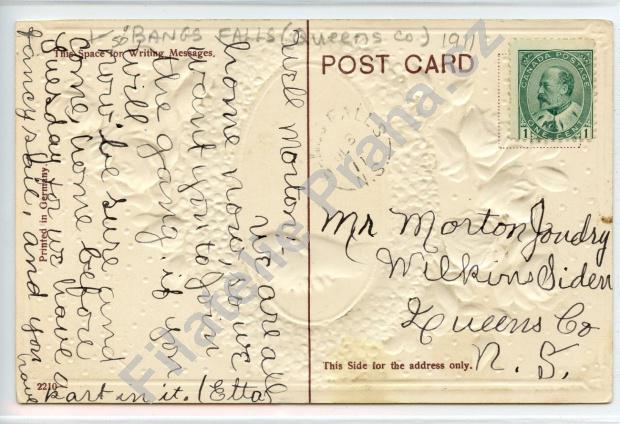 BANGS FALLS (QUEENS CO) 1911
This Space for Writing Messages.
POST CARD
CANADA POSTAGE
1 ONE CENT 1
FALLS
Well Morton,
We are all
home now, so we
want you to join
the gang. if you
will
now be sure and
come home before
tuesday so we have a
fancy sale, and you have
part in it. (Etta)
Mr Morton Joudry
Wilkins Siden
Queens Co
N. S.
This Side for the address only.
Printed in Germany
2210
Filatelie Praha.cz